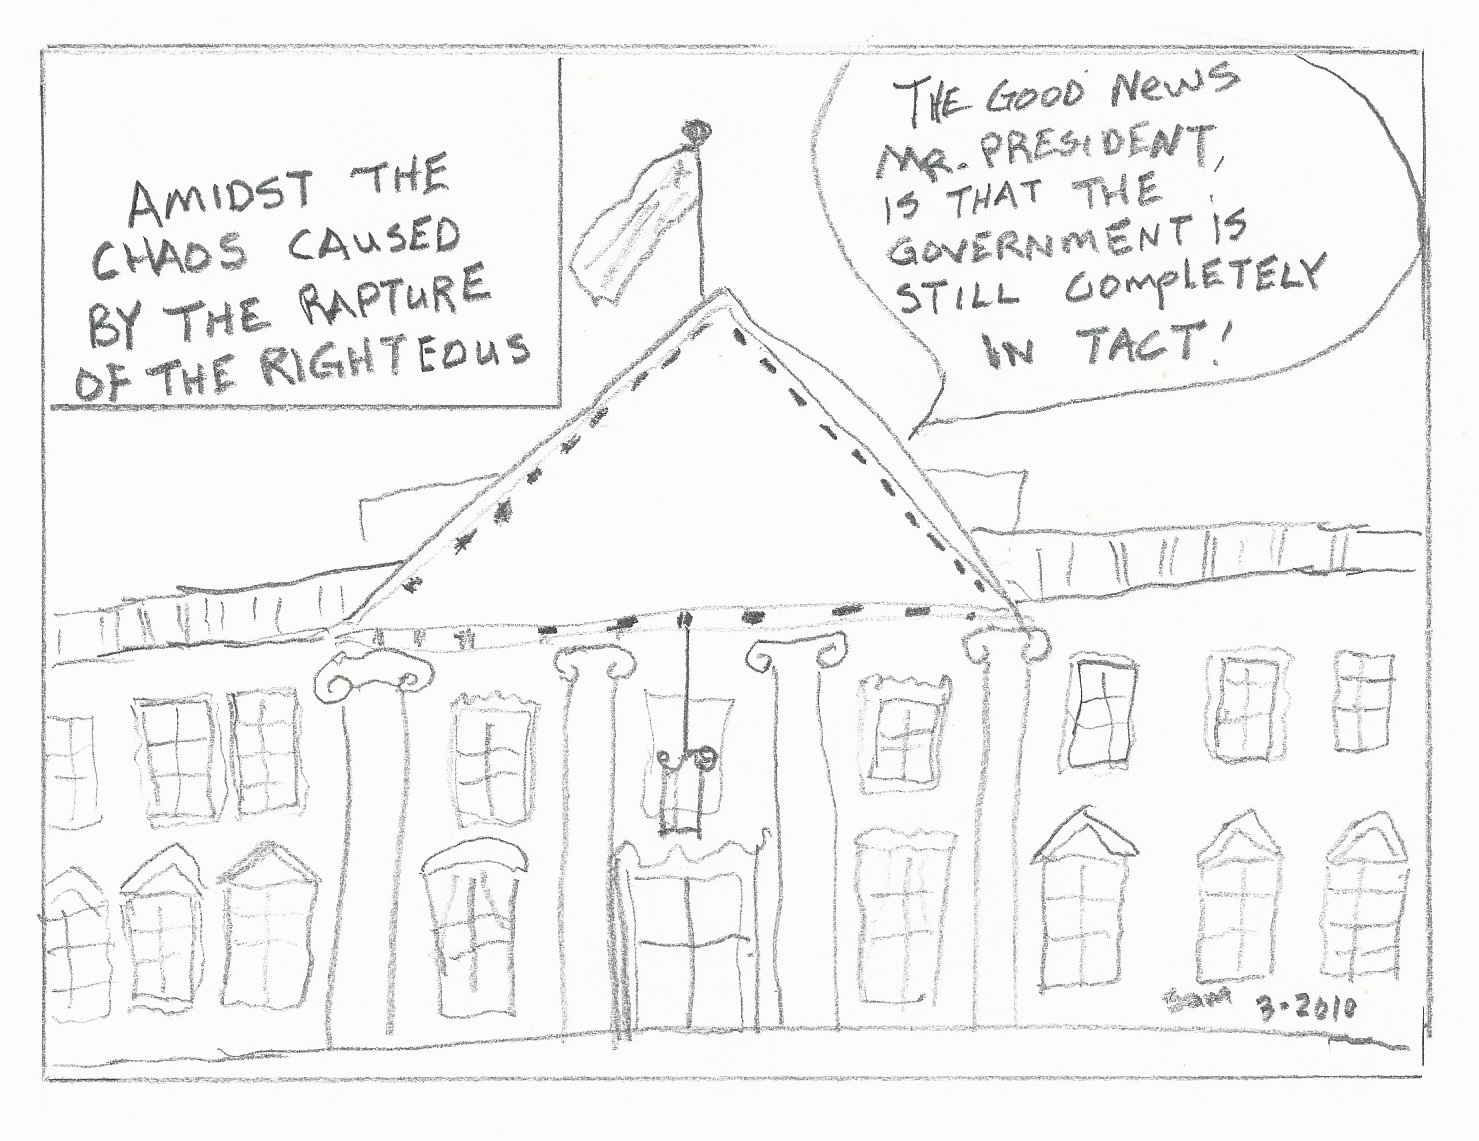 AMIDST THE
CHAOS CAUSED
BY THE RAPTURE
OF THE RIGHTEOUS
THE GOOD NEWS
MR. PRESIDENT,
IS THAT THE
GOVERNMENT IS
STILL COMPLETELY
IN TACT!
3-2010